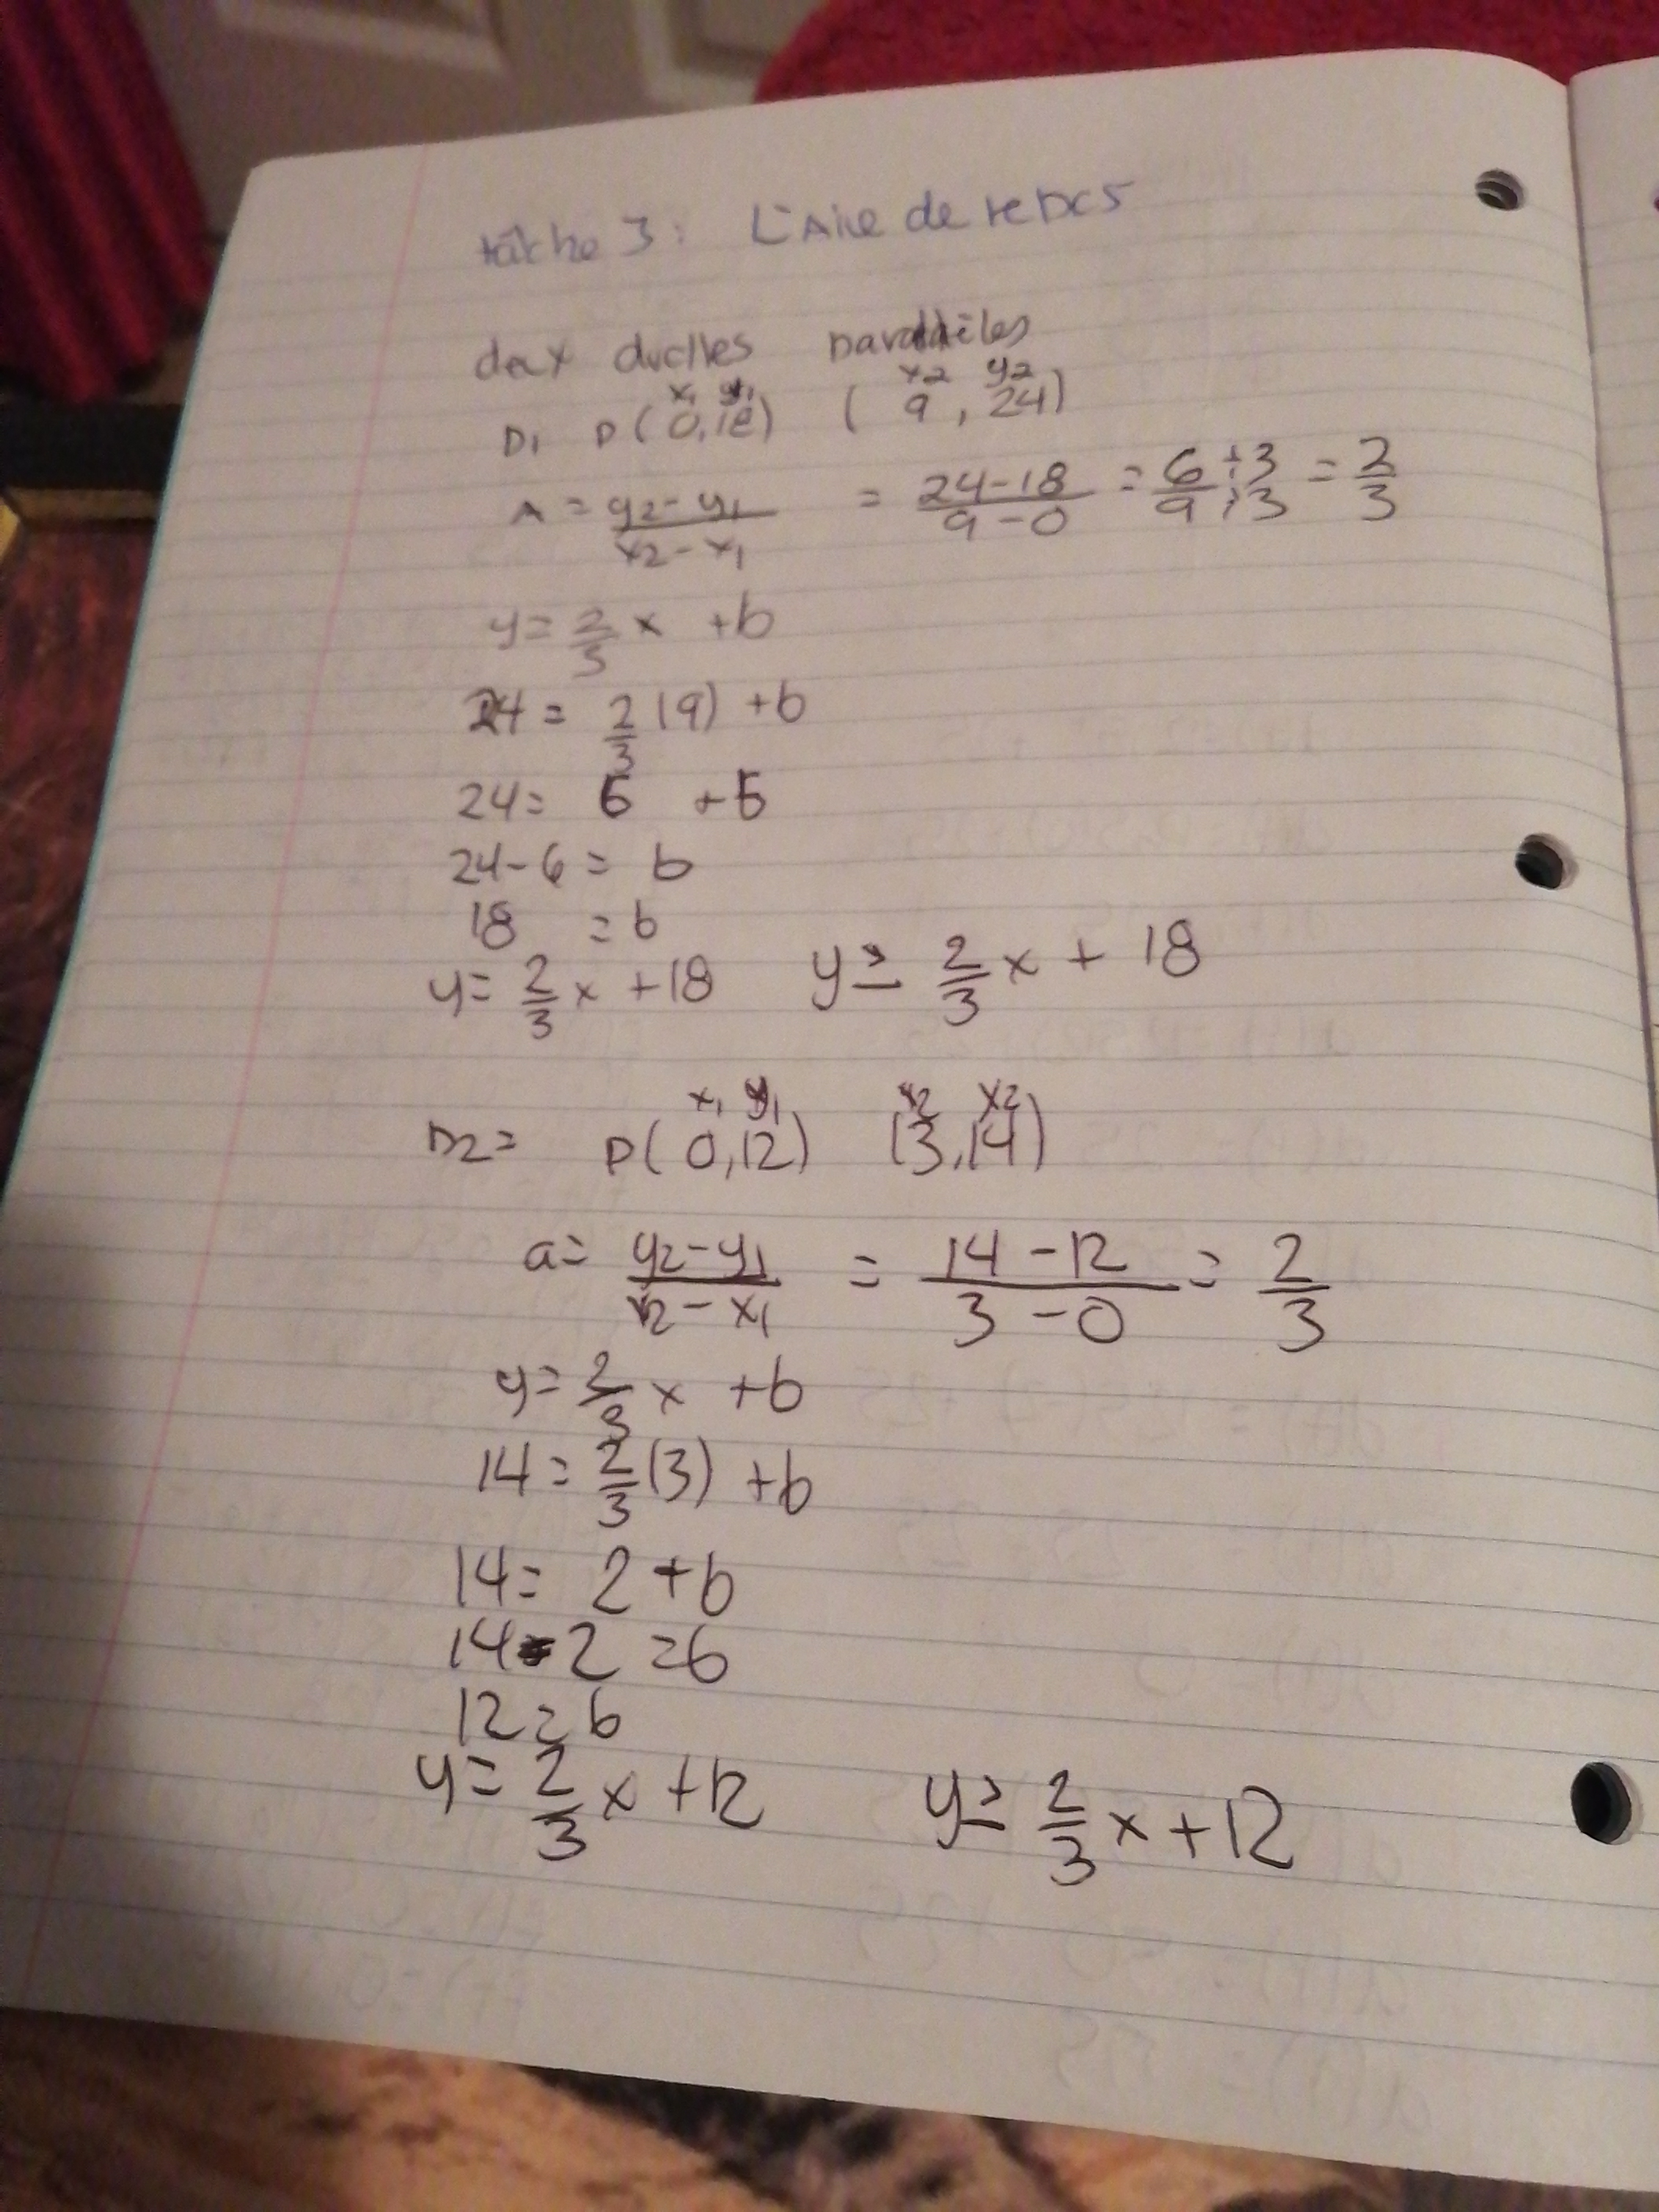 tâche 3: L'Aire de repos
deux droites parallèles
x1 y1 x2 y2
D1 P(0,18) (9,24)
A = y2-y1/x2-x1 = 24-18/9-0 = 6÷3/9÷3 = 2/3
y = 2/3 x + b
24 = 2/3 (9) + b
24 = 6 + b
24-6 = b
18 = b
y = 2/3 x + 18 y ≥ 2/3 x + 18
x1 y1 x2 x2
D2 = P(0,12) (3,14)
a = y2-y1/x2-x1 = 14-12/3-0 = 2/3
y = 2/3 x + b
14 = 2/3 (3) + b
14 = 2 + b
14-2 = b
12 = b
y = 2/3 x + 12 y ≥ 2/3 x + 12